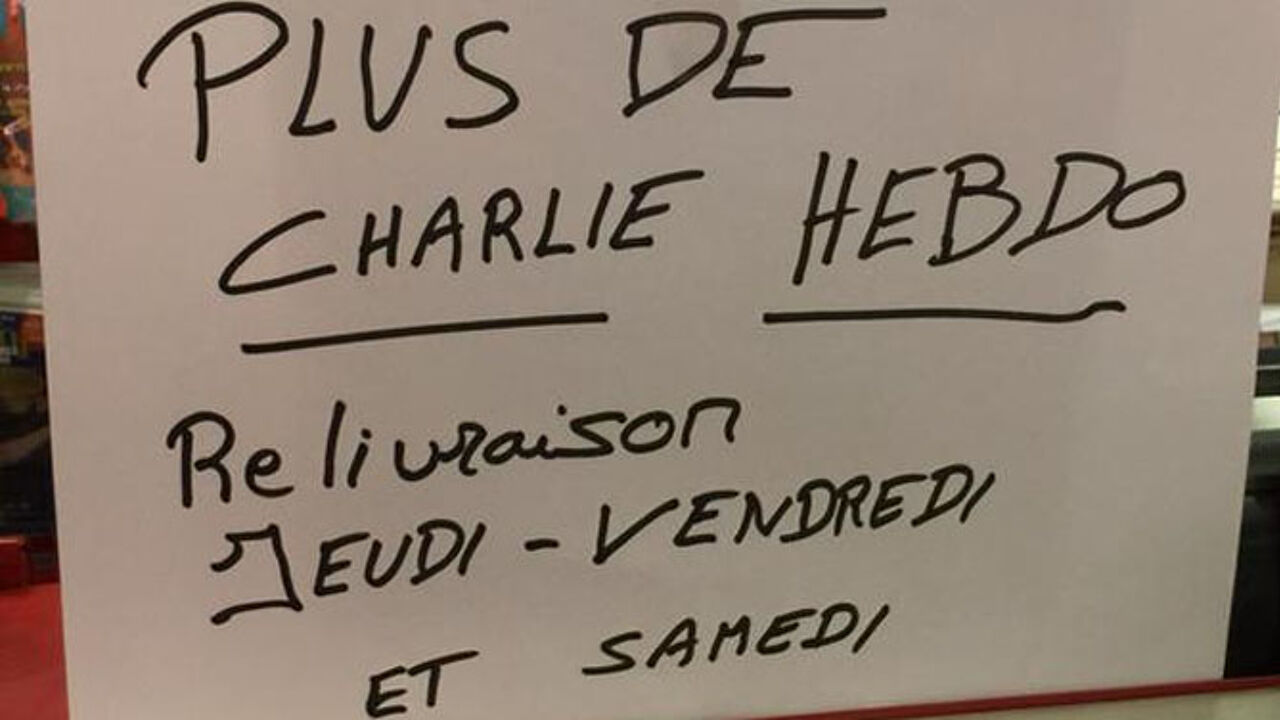 PLUS DE
CHARLIE HEBDO
Relivraison
JEUDI - VENDREDI
ET SAMEDI